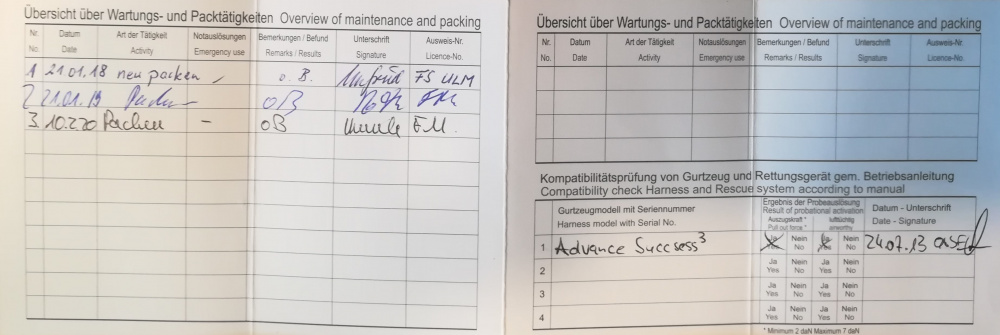 Übersicht über Wartungs- und Packtätigkeiten Overview of maintenance and packing
Nr. Datum Art der Tätigkeit Notauslösungen Bemerkungen / Befund Unterschrift Ausweis-Nr.
No. Date Activity Emergency use Remarks / Results Signature Licence-No.
1 21.01.18 neu packen - o. B. FS ULM
2 21.01.19 - oB
3. 10.2.20 Packen - oB
Übersicht über Wartungs- und Packtätigkeiten Overview of maintenance and packing
Nr. Datum Art der Tätigkeit Notauslösungen Bemerkungen / Befund Unterschrift Ausweis-Nr.
No. Date Activity Emergency use Remarks / Results Signature Licence-No.
Kompatibilitätsprüfung von Gurtzeug und Rettungsgerät gem. Betriebsanleitung
Compatibility check Harness and Rescue system according to manual
Gurtzeugmodell mit Seriennummer
Harness model with Serial No.
Ergebnis der Probeauslösung
Result of probational activation
Auszugskraft * lufttüchtig
Pull out force * airworthy
Datum - Unterschrift
Date - Signature
1 Advance Succsess³ Ja Nein Ja Nein 24.07.13
Yes No Yes No
2 Ja Nein Ja Nein
Yes No Yes No
3 Ja Nein Ja Nein
Yes No Yes No
4 Ja Nein Ja Nein
Yes No Yes No
* Minimum 2 daN Maximum 7 daN